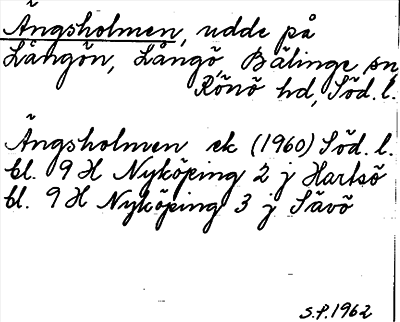 Ängsholmen, udde på
Långön, Långö, Bälinge sn
Rönö hd, Söd. l.
Ängsholmen ek (1960) Söd. l.
bl. 9 H Nyköping 2 j Hartsö
bl. 9 H Nyköping 3 j Sävö
S.P. 1962